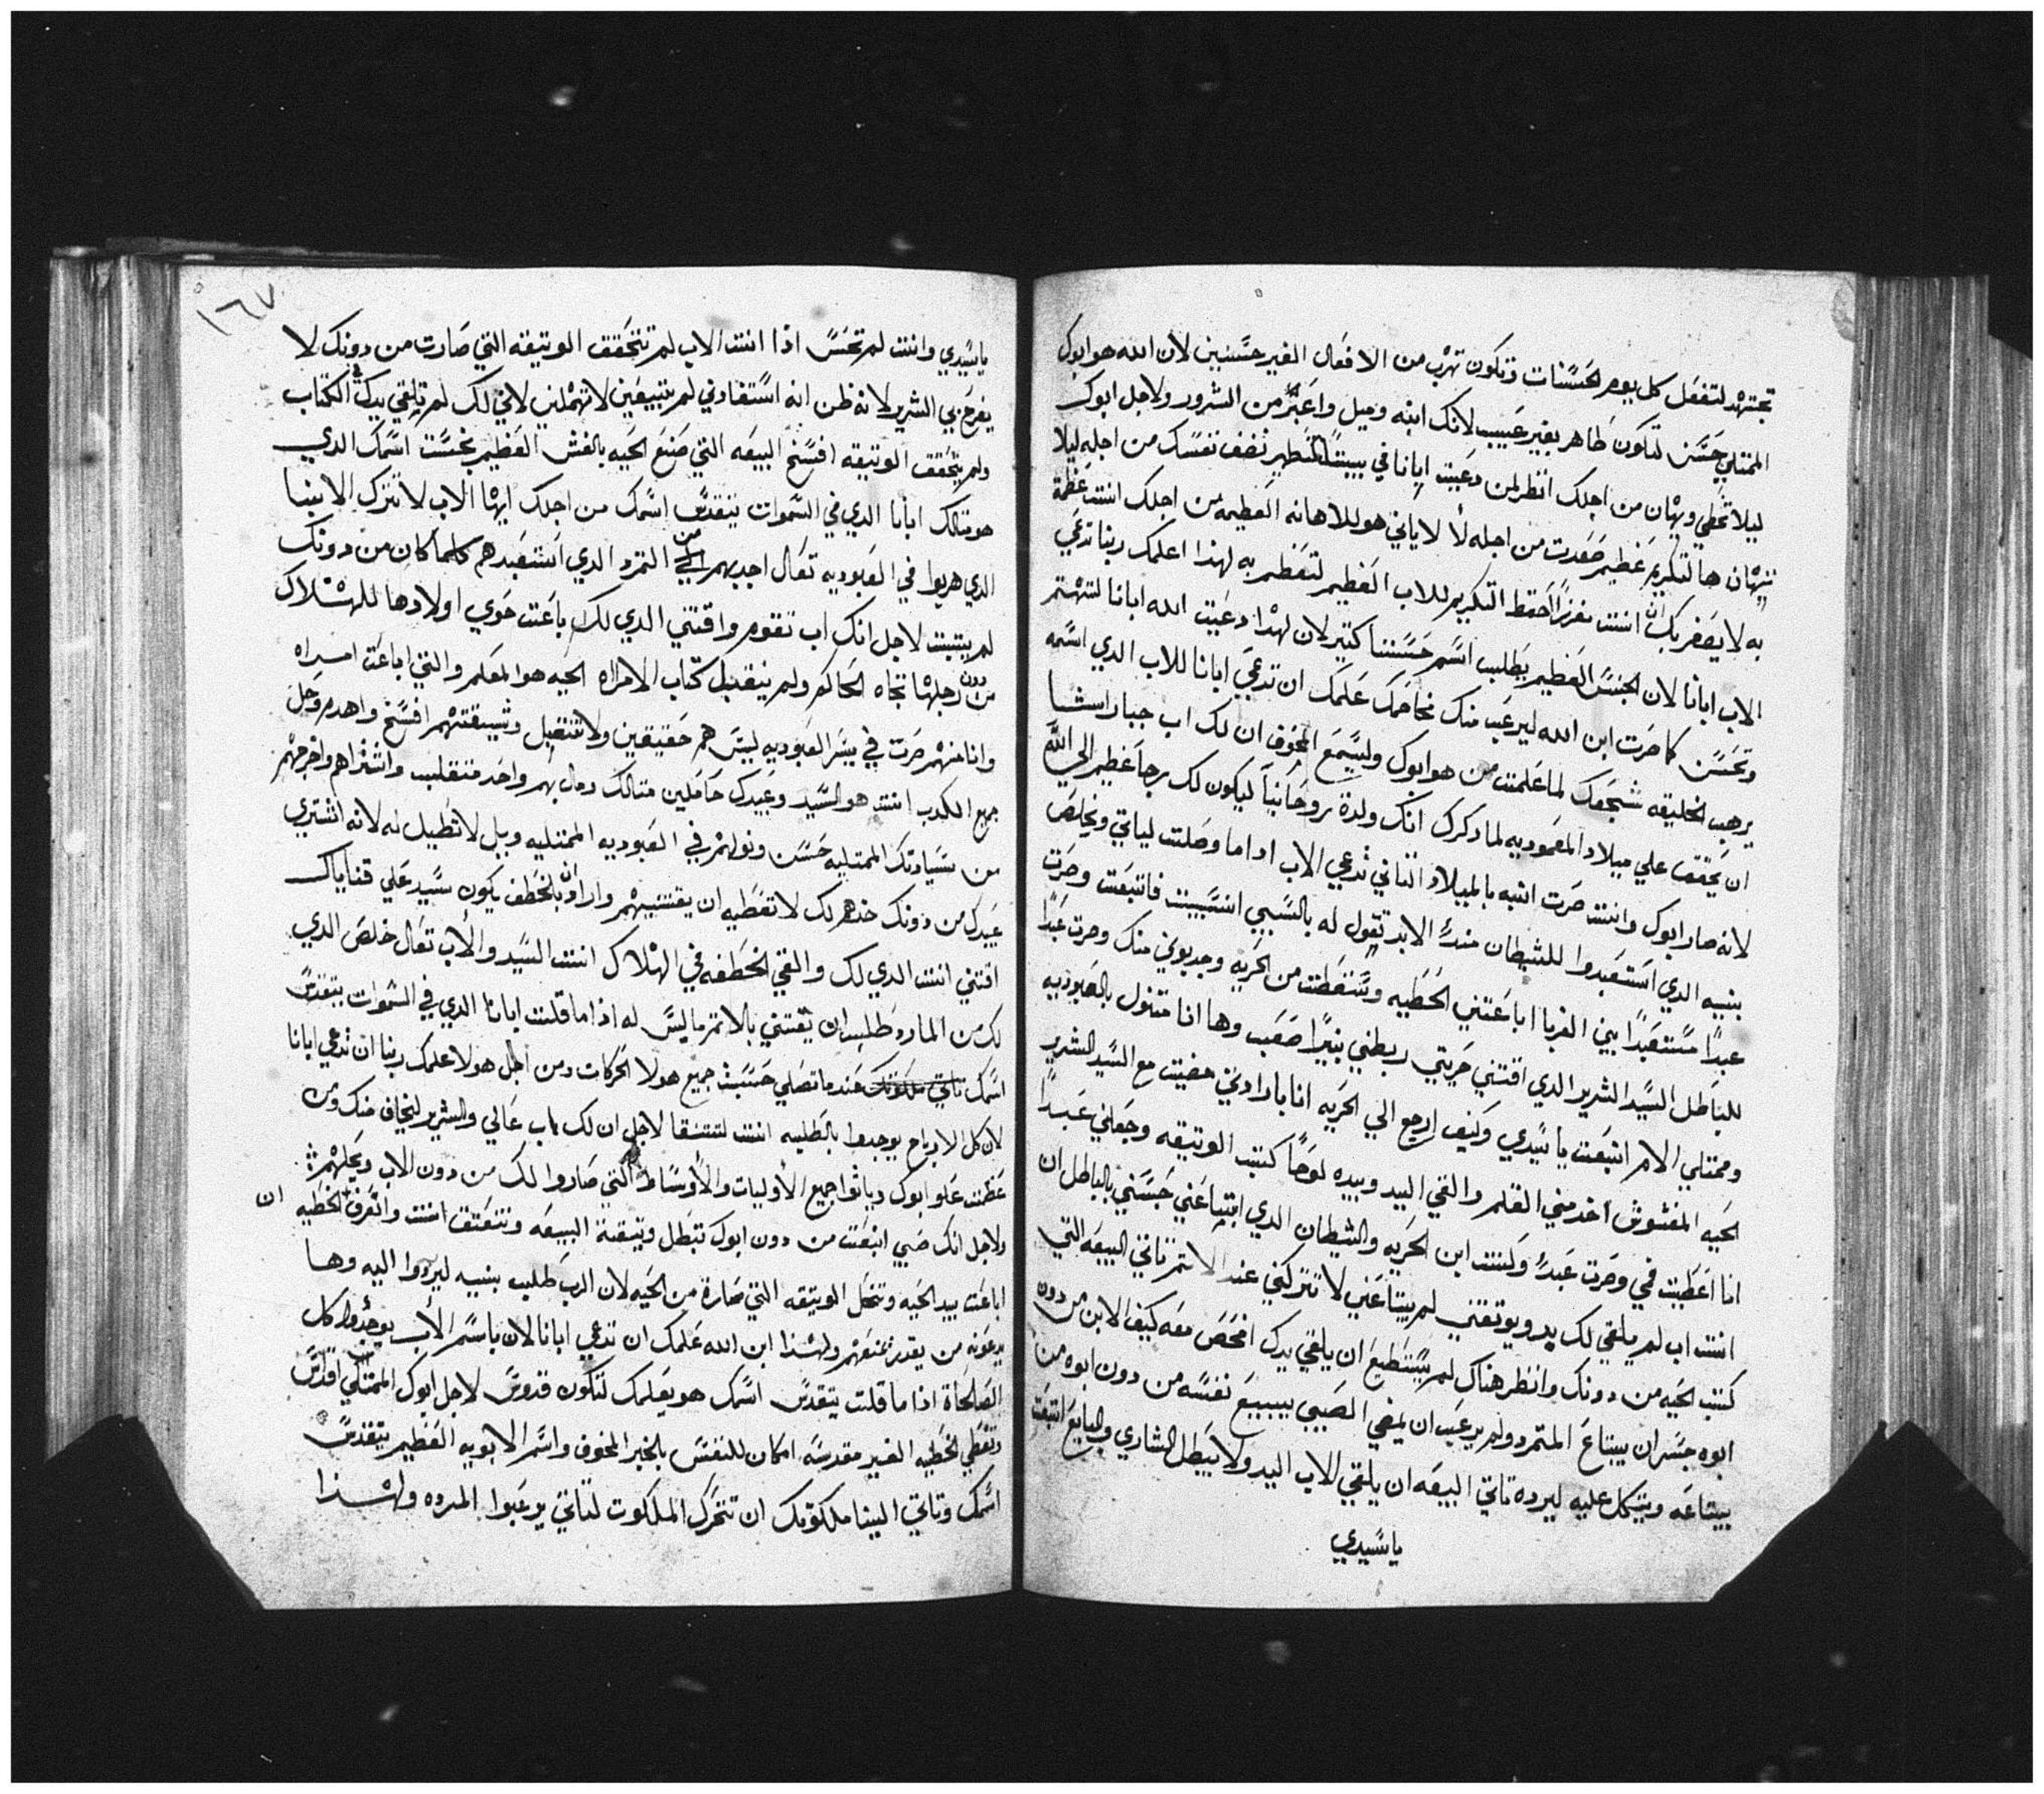 تجتهد لتفعل كل يوم الحسنات وتكون تهرب من الافعال الغير حسنين لان الله هو ابوك
الممتلي حسن لتكون طاهر بغير عيب لانك ابنه وميل واعبر من الشرور ولاجل ابوك
ليلا تخطي ويهان من اجلك انظر لمن دعيت ابانا في بيتك لتطهر نضف نفسك من اجله ليلا
يتهان ها لتكريم عظيم صعدت من اجله لا لا ياتي هو للاهانه العظيمه من اجلك انت عظمة
به لا يصغر بك ان انت مفرزا احفظ التكريم للاب العظيم لتعظم به لهذا اعلمك ربنا تدعي
الاب ابانا لان الجنس العظيم يطلب اسم حسنا كتير لان لهذا دعيت الله ابانا لتهتم
وتحسن كما صرت ابن الله ليرعب منك مخاصمك علمك ان تدعي ابانا للاب الذي اسمه
يرهب الخليقه شجعك لما علمت من هو ابوك وليسمع المخوف ان لك اب جبار اسشا
ان يحقق علي ميلاد المعموديه لما دكرك انك ولدة روحانيا ليكون لك برجا عظيم الي الله
لانه صار ابوك وانت صرت ابنه بالميلاد التاني تدعي الاب اداما وصلت لياتي ويخلص
بنيه الدي استعبدوا للشيطان منذ الابد تقول له بالسبي انسبيت فابتعت وصرت
عبدا مستعبدا بين الغربا اباعتني الخطيه وسقطت من الحريه وجدبوني منك وصرت عبدا
للباطل السيد الشرير الدي اقتني حريتي ربطني بنيرا صعب وها انا متنول بالعبوديه
وممتلي الام ابتعت يا سيدي وكيف ارجع الي الحريه انا بارادتي مضيت مع السيد الشرير
الحيه المغشوش اخد مني القلم والقي اليد وبيده لوحا كتب الوتيقه وجعلني عبدا
انا اعطيت فمي وصرت عبد ولست ابن الحريه والشيطان الدي ابتاعني حبسني بالباطل ان
انت اب لم يلقي لك يد ويوتقني لم يبتاعني لا تتركني عند الاتمر تاتي البيعه التي
كتب الحيه من دونك وانظر هناك لم يستطيع ان يلقي يدك افحص معه كيف الابن من دون
ابوه جسر ان يبتاع المتمرد ولم يرعب ان يمضي الصبي يبيع نفسه من دون ابوه من
يبتاعه ويتكل عليه ليرده تاتي البيعه ان يلقي للاب اليد ولا يبطل الشاري والبايع ابتعت
يا سيدي
١٦٧
يا سيدي وانت لم تحس اذا انت الاب لم تتحقق الوتيقه التي صارت من دونك لا
يفرح بي الشرير لانه ظن انه استفادني لم يتبيعين لا تهملني لاني لك لم تلقي يدك في الكتاب
ولم يتحقق الوتيقه افسخ البيعه التي صنع الحيه بالغش العظيم بخست اسمك الدي
هو تالك ابانا الدي في السموات يتقدس اسمك من اجلك ايها الاب لا تترك الابنا
الدي هربوا في العبوديه تعال اجدبهم من التمرد الدي استعبدهم كلما كان من دونك
لم يتبت لاجل انك اب تقوم واقتني الدي لك باعت حوي اولادها للهلاك
من دون رجلها تجاه الحاكم ولم يتقبل كتاب الامراه الحيه هو المعلم والتي اباعت امراه
وانا منهم صرت في بير العبوديه ليس هم حقيقين ولا تتقبل وتيقتهم افسخ واهدم وحل
جميع الكدب انت هو السيد وعبيدك حاملين متالك ومال بهم واحد متقلب واشتراهم واخرجهم
من سيادتك الممتليه حسن ونولهم في العبوديه الممتليه ويل لا تطيل له لانه اشتري
عبيدك من دونك خدهم لك لا تعطيه ان يقتنيهم واراد ان بالخطف يكون سيد علي قناياك
اقتني انت الدي لك والقي الخطفه في الهلاك انت السيد والاب تعال خلص الدي
لك من المارد طلب ان يقتني بالاتم ما ليس له اذا ما قلت ابانا الدي في السموات يتقدس
اسمك تاتي ملكوتك عند ما تصلي حسبت جميع هولا الحركات ومن اجل هولا علمك ربنا ان تدعي ابانا
لان كل الارباح يوجدوا بالطلبه انت لتتنقا لاجل ان لك اب عالي والشرير ليخاف منك ومن
عظمت علو ابوك وياتوا جميع الأوليات والأوساط التي صاروا لك من دون الاب ويحلهم
ولاجل انك صبي ابتعت من دون ابوك تبطل وتيقة البيعه وتتعتق انت واتعرف الخطيه ان
اباعت بيد الحيه وتنحل الوتيقه التي صارة من الحيه لان الرب طلب بنيه ليردوا اليه وها
يدعونه من يقدر يمنعهم ولهذا ابن الله علمك ان تدعي ابانا لان باسم الأب يوجدوا كل
الصالحاة اذا ما قلت يتقدس اسمك هو يعلمك لتكون قدوس لاجل ابوك الممتلي اقداس
وتعطي لخطيه الغير مقدسه امكان للنفس بالخبر المخوف واسم الابويه العظيم يتقدس
اسمك وتاتي الينا ملكوتك ان تتحرك الملكوت لتاتي يرعبوا المرده ولهذا